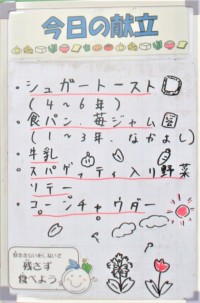 今日の献立
・シュガートースト
(4～6年)
・食パン、苺ジャム
(1～3年、なかよし)
・牛乳
・スパゲッティ入り野菜
ソテー
・コーンチャウダー
残さず
食べよう